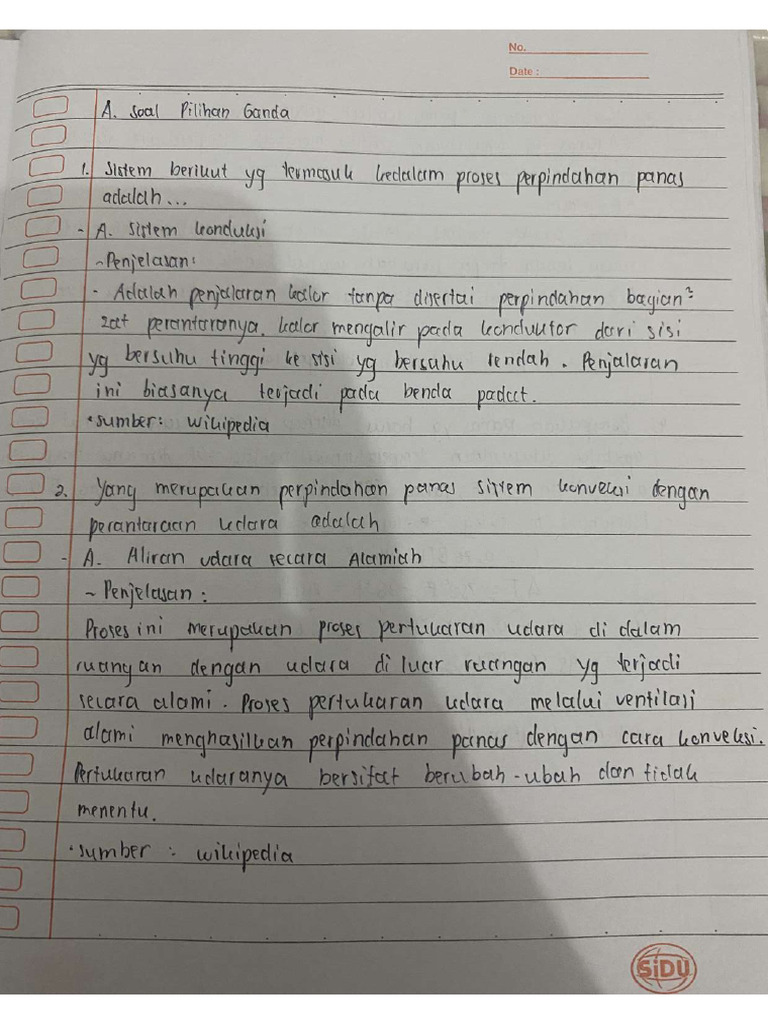 No.
Date :
A. Soal Pilihan Ganda
1. Sistem berikut yg termasuk kedalam proses perpindahan panas
adalah...
- A. Sistem konduksi
~ Penjelasan:
- Adalah penjalaran kalor tanpa disertai perpindahan bagian²
zat perantaranya. kalor mengalir pada konduktor dari sisi
yg bersuhu tinggi ke sisi yg bersuhu rendah. Penjalaran
ini biasanya terjadi pada benda padat.
• sumber: wikipedia
2. Yang merupakan perpindahan panas sistem konveksi dengan
perantaraan udara adalah
- A. Aliran udara secara Alamiah
~ Penjelasan :
Proses ini merupakan proses pertukaran udara di dalam
ruangan dengan udara di luar ruangan yg terjadi
secara alami. Proses pertukaran udara melalui ventilasi
alami menghasilkan perpindahan panas dengan cara konveksi.
Pertukaran udaranya bersifat berubah-ubah dan tidak
menentu.
• sumber : wikipedia
SiDU